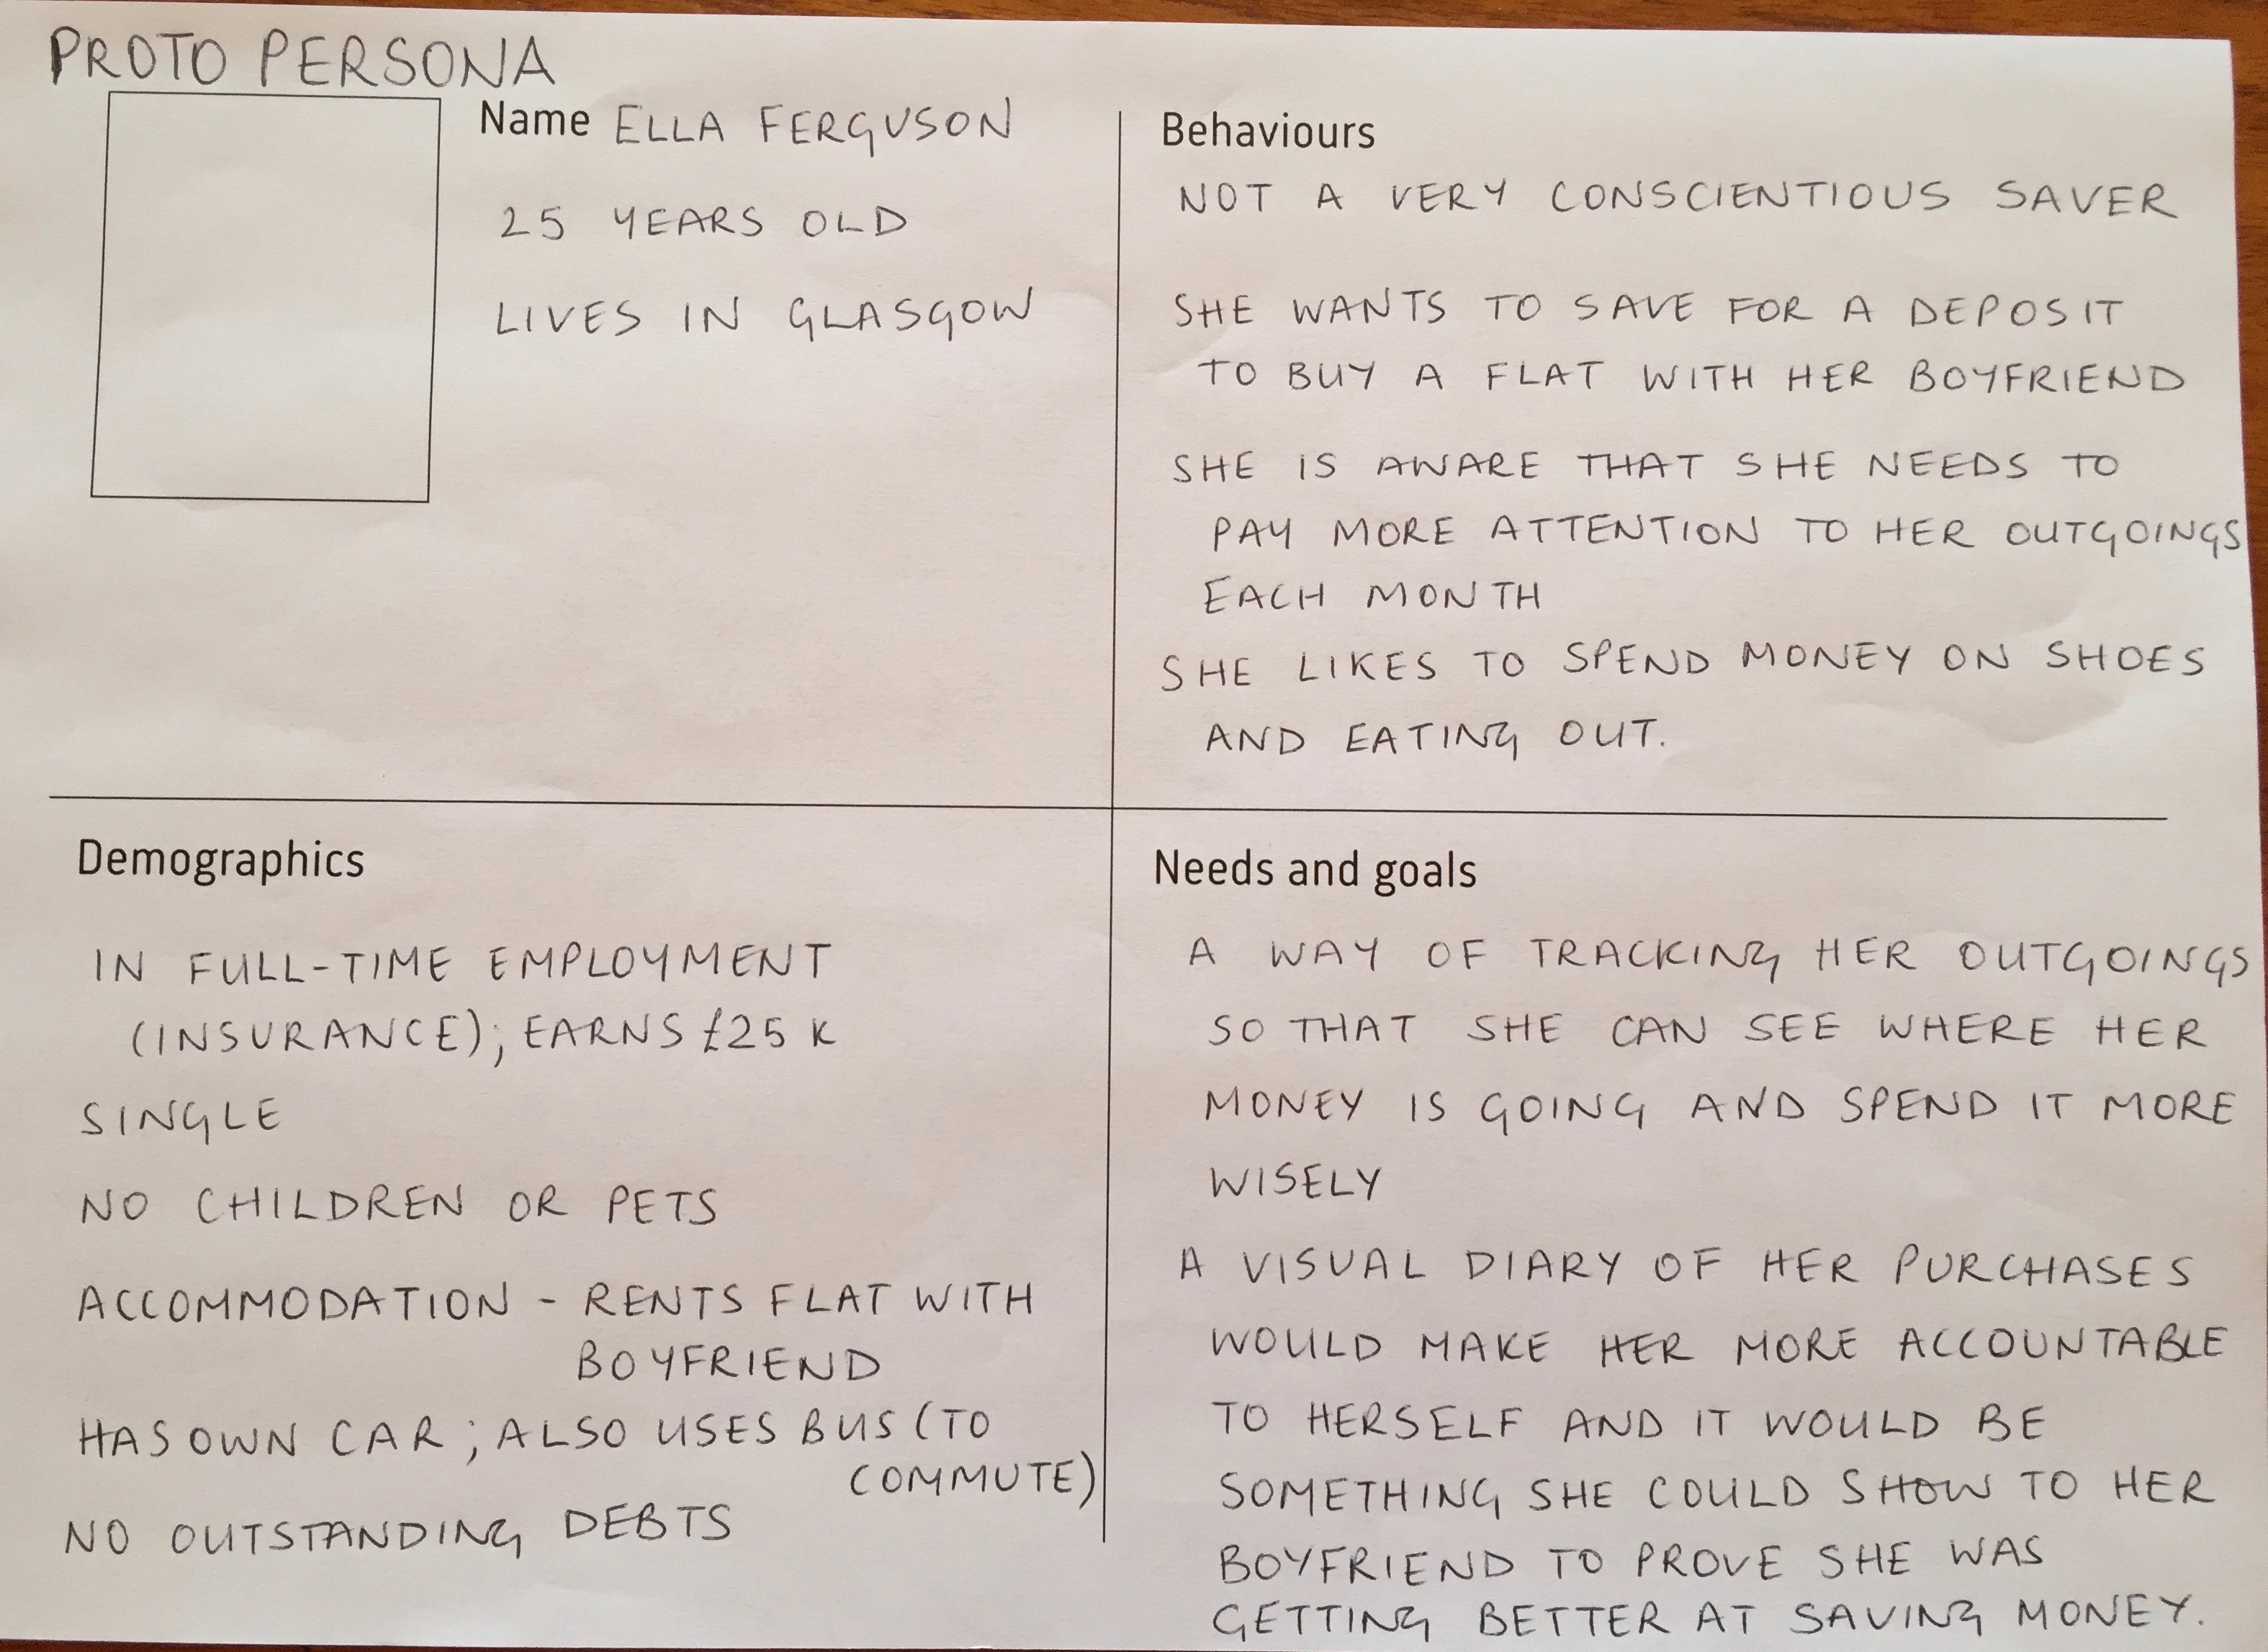 PROTO PERSONA
Name ELLA FERGUSON
25 YEARS OLD
LIVES IN GLASGOW
Behaviours
NOT A VERY CONSCIENTIOUS SAVER
SHE WANTS TO SAVE FOR A DEPOSIT
TO BUY A FLAT WITH HER BOYFRIEND
SHE IS AWARE THAT SHE NEEDS TO
PAY MORE ATTENTION TO HER OUTGOINGS
EACH MONTH
SHE LIKES TO SPEND MONEY ON SHOES
AND EATING OUT.
Demographics
IN FULL-TIME EMPLOYMENT
(INSURANCE); EARNS £25 K
SINGLE
NO CHILDREN OR PETS
ACCOMMODATION - RENTS FLAT WITH
BOYFRIEND
HAS OWN CAR; ALSO USES BUS (TO
COMMUTE)
NO OUTSTANDING DEBTS
Needs and goals
A WAY OF TRACKING HER OUTGOINGS
SO THAT SHE CAN SEE WHERE HER
MONEY IS GOING AND SPEND IT MORE
WISELY
A VISUAL DIARY OF HER PURCHASES
WOULD MAKE HER MORE ACCOUNTABLE
TO HERSELF AND IT WOULD BE
SOMETHING SHE COULD SHOW TO HER
BOYFRIEND TO PROVE SHE WAS
GETTING BETTER AT SAVING MONEY.